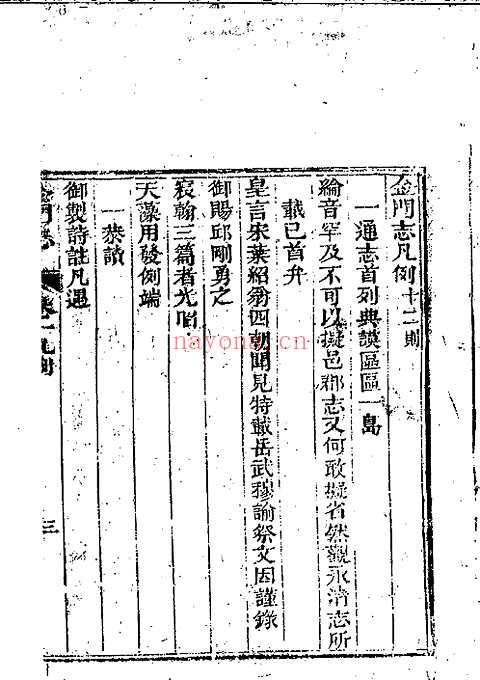 金門志凡例十二則
一通志首列典謨區區一島
綸音罕及不可以擬邑郡志又何敢擬省然觀永清志所
載已首弁
皇言宋葉紹翁四朝聞見特載岳武穆諭祭文因謹錄
御賜邱剛勇之
宸翰三篇者光唱
天藻用發例端
一恭讀
御製詩註凡遇
金門志 卷一凡例 三
nayona.cn